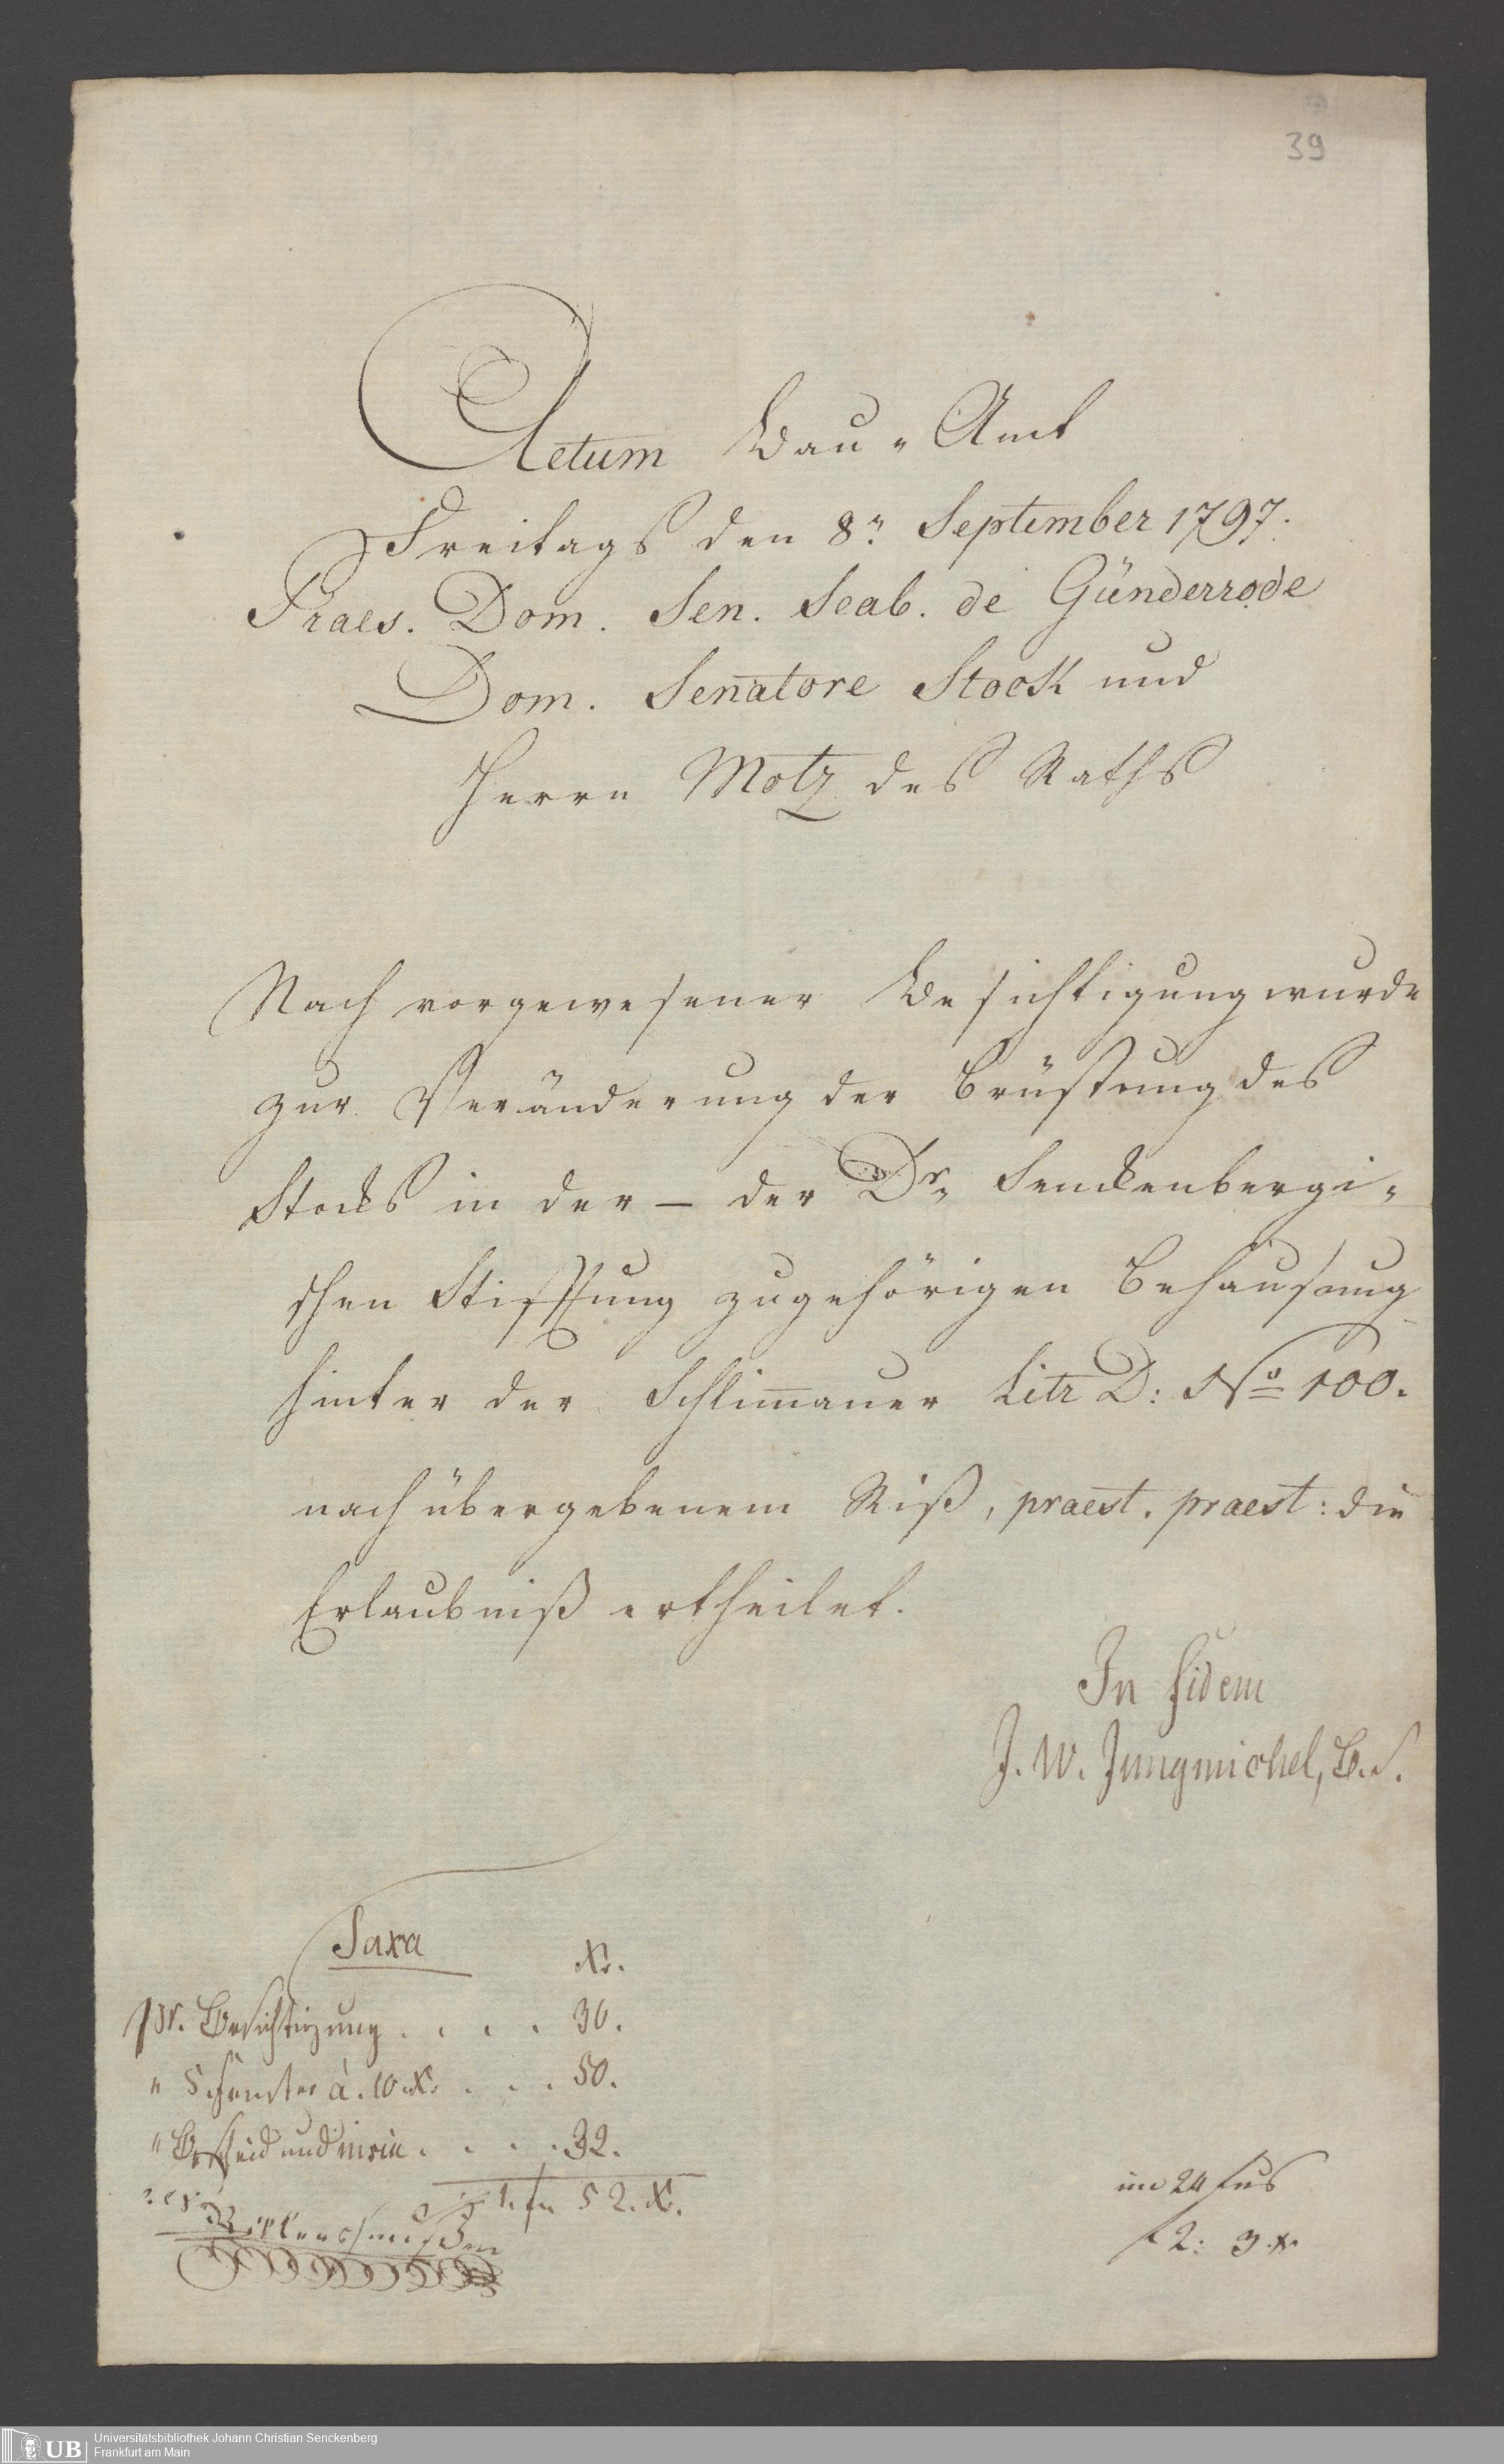 39
Actum Bau-Amt
Freitags den 8n September 1797.
Praes. Dom. Sen. Scab. de Günderrode
Dom. Senatore Stock und
Herrn Motz des Raths
Nach vorgewesener Besichtigung wurde
zur Veränderung der Brüstung des
Stocks in der – der Dr. Senckenbergi-
schen Stifftung zugehörigen Behausung
hinter der Schlimauer Litr D: No 100.
nach übergebenem Riß, praest. praest: die
Erlaubniß ertheilet.
In fidem
J. W. Jungmichel, B. S.
Taxa
Xr.
pr. Besichtigung . . . . 30.
" 5 Fenster à. 10 Xr. . . . 50.
" Bescheid und . . . . 32.
1. fl 52. Xr.
im 24 fus
f 2: 3 Xr
UB Universitätsbibliothek Johann Christian Senckenberg
Frankfurt am Main